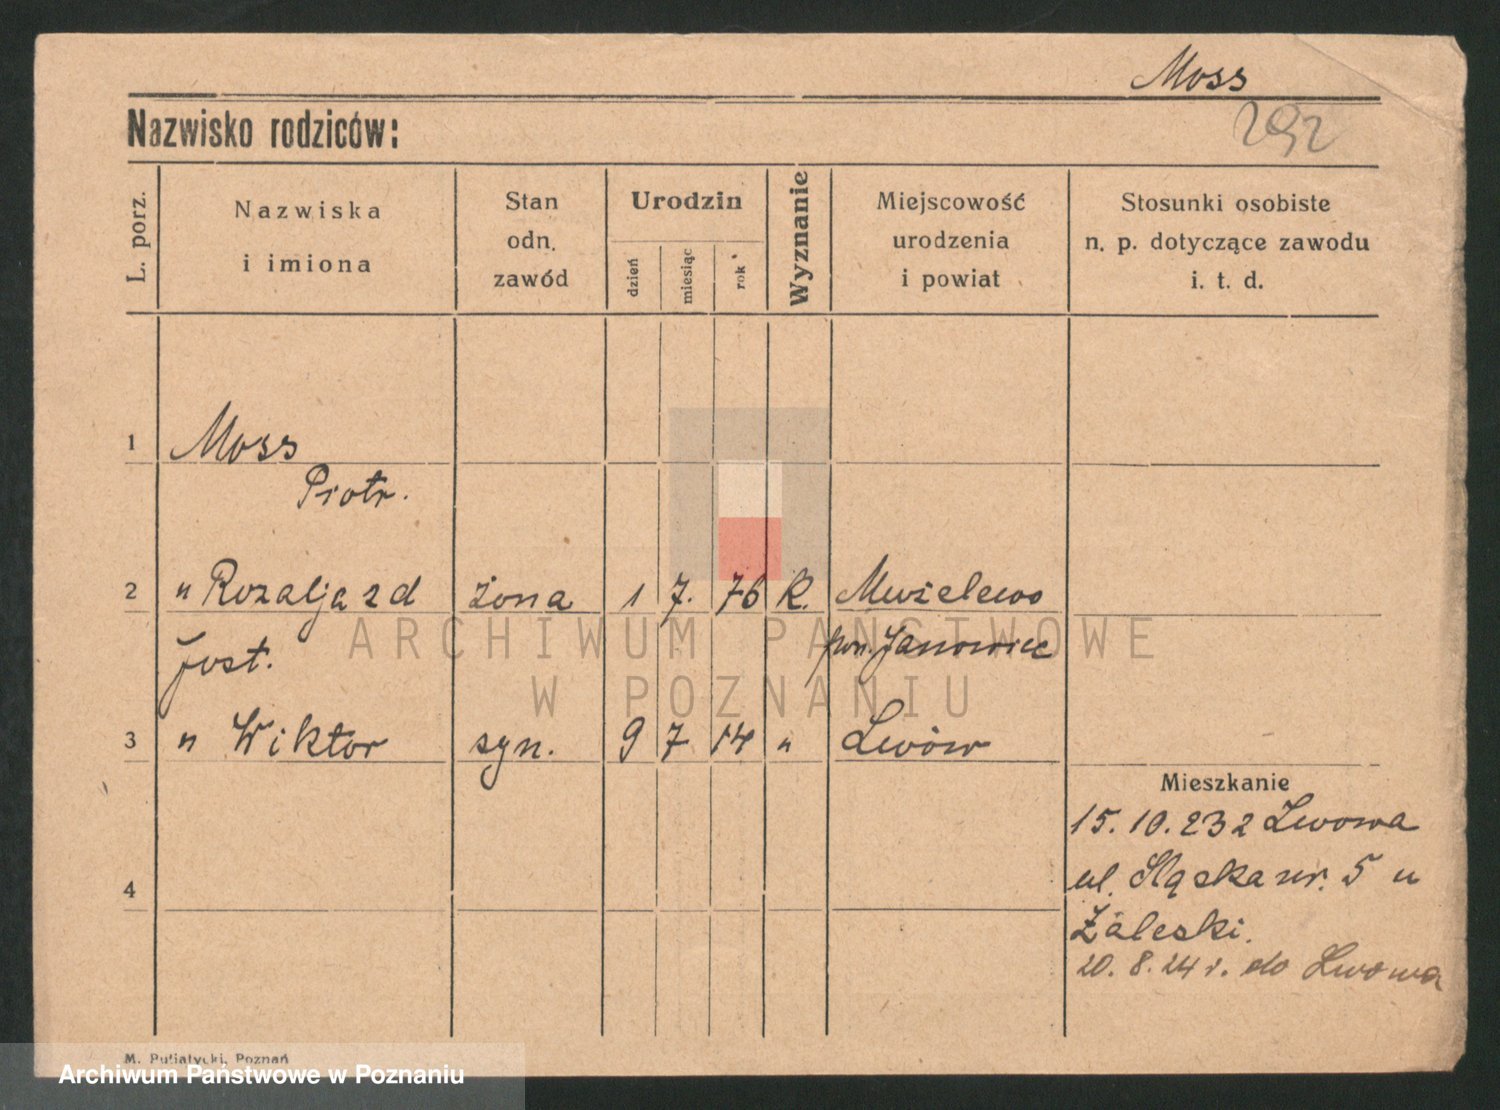 Moss
Nazwisko rodziców:
292
L. porz.
Nazwiska
i imiona
Stan
odn.
zawód
Urodzin
dzień
miesiąc
rok
Wyznanie
Miejscowość
urodzenia
i powiat
Stosunki osobiste
n. p. dotyczące zawodu
i. t. d.
1 Moss
Piotr.
2 " Rozalja zd żona 1 7. 76 k.
Jost. pow. Janowiec
3 " Wiktor syn. 9 7 14 " Lwów
Mieszkanie
15. 10. 23 z Lwowa
ul. Śląska nr. 5 u
Zaleski.
20. 8. 24 r. do Lwowa
4
ARCHIWUM PAŃSTWOWE
W POZNANIU
M. Putiatycki, Poznań
Archiwum Państwowe w Poznaniu